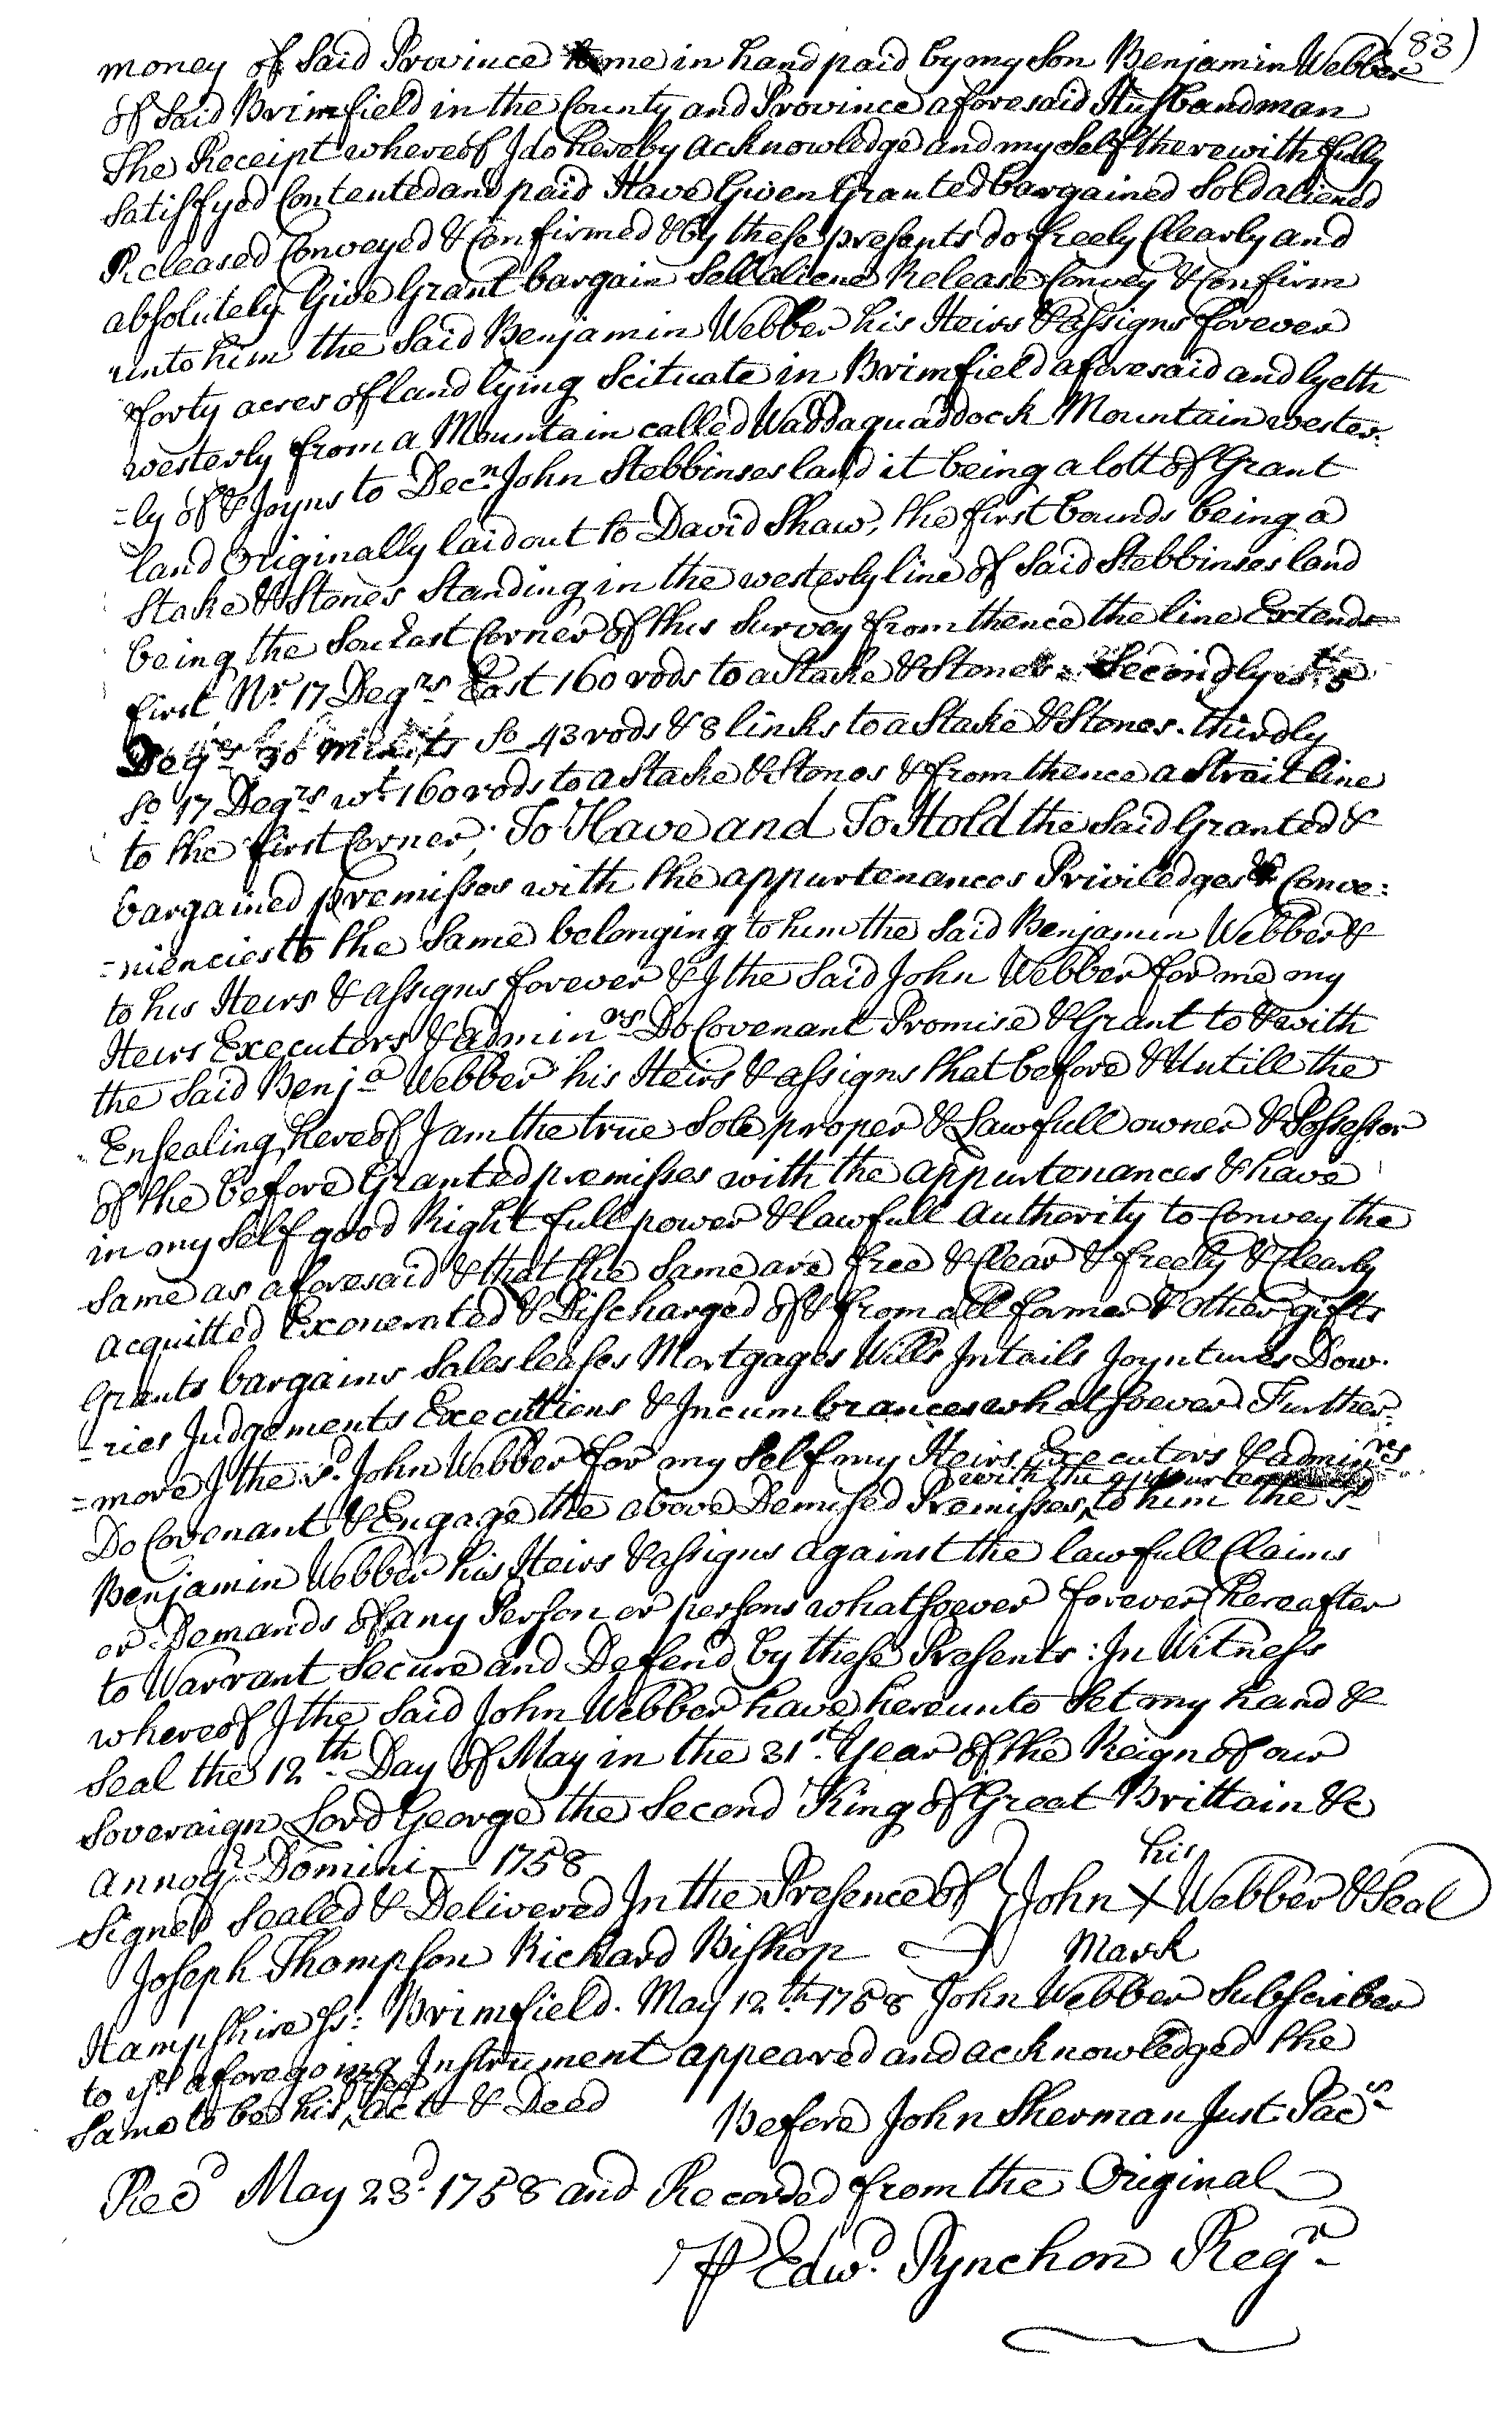 (83)
money of Said Province to me in hand paid by my Son Benjamin Webber
of Said Brimfield in the County and Province aforesaid Husbandman
The Receipt whereof I do hereby acknowledge and my Self therewith fully
Satisfyed Contented and paid Have Given Granted bargained Sold aliened
Released Conveyed & Confirmed & by these presents do freely Clearly and
absolutely Give Grant bargain Sell aliene Release Convey & Confirm
unto him the Said Benjamin Webber his Heirs & assigns forever
forty acres of land lying Scituate in Brimfield aforesaid and lyeth
westerly from a Mountain called Waddaquaddock Mountain wester:
=ly of & Joyns to Decn. John Stebbinses land it being a lott of Grant
land Originally laid out to David Shaw, the first bounds being a
Stake & Stones Standing in the westerly line of Said Stebbinses land
being the Sou East Corner of this Survey from thence the line Extends
first Nr. 17 Degrs East 160 rods to a Stake & Stones: Secondly 5
Degrs 30 Minits So 43 rods & 8 links to a Stake & Stones. thirdly
So 17 Degrs wt. 160 rods to a Stake & Stones & from thence a Strait line
to the first Corner. To Have and To Hold the Said Granted &
bargained premisses with the appurtenances Priviledges & Conve:
=niencies to the Same belonging to him the Said Benjamin Webber &
to his Heirs & assigns forever & I the Said John Webber for me my
Heirs Executors & adminrs Do Covenant Promise & Grant to & with
the Said Benja Webber his Heirs & assigns that before & Untill the
Ensealing hereof I am the true Sole proper & Lawfull owner & Possessor
of the before Granted premisses with the appurtenances & have
in my Self good Right full power & lawfull authority to Convey the
Same as aforesaid & that the Same are free & Clear & freely & Clearly
acquitted Exonerated & Discharged of & from all former & other gifts
Grants bargains Sales leases Mortgages Wills Intails Joyntures Dow.
=ries Judgements Executions & Incumbrances whatsoever. Further:
=more I the sd. John Webber for my Self my Heirs Executors & adminrs
with the appurtenances
Do Covenant & Engage the above Demised Premisses to him the sd
Benjamin Webber his Heirs & assigns against the lawfull Claims
or Demands of any Person or persons whatsoever forever hereafter
to Warrant Secure and Defend by these Presents: In Witness
whereof I the Said John Webber have hereunto Set my hand &
Seal the 12th Day of May in the 31st. Year of the Reign of our
Soveraign Lord George the Second King of Great Brittain &c
Annoq. Domini 1758
his
Signed Sealed & Delivered In the Presence of } John X Webber & Seal
Joseph Thompson Richard Bishop Mark
Hampshire Ss: Brimfield. May 12th. 1758 John Webber Subscriber
to ye aforegoing Instrument appeared and acknowledged the
free
Same to be his act & Deed Before John Sherman Just. Pacs
Recd May 23d. 1758 and Recorded from the Original
P Edwd. Pynchon Regr